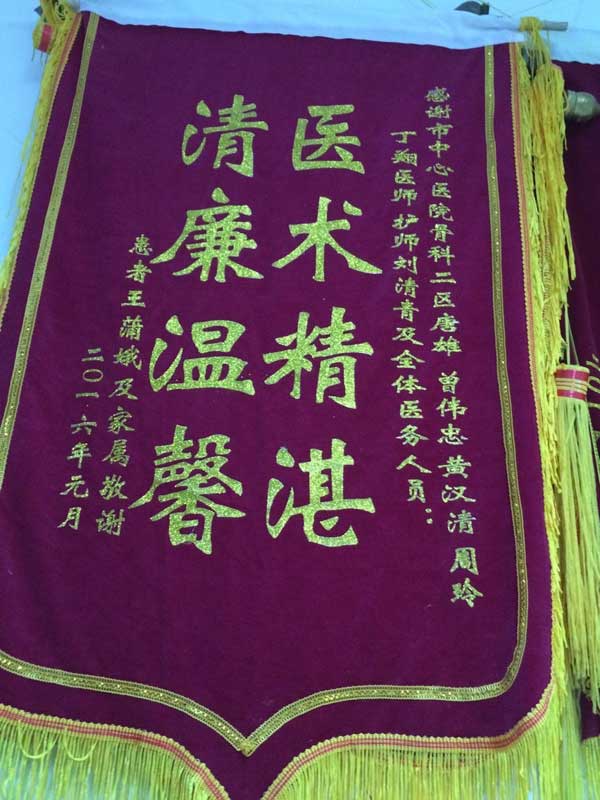 感谢市中心医院骨科二区唐雄 曾伟忠黄汉清 周玲
丁翔医师 护师刘清青及全体医务人员：
医术精湛
清廉温馨
患者王蒲娥及家属敬谢
二〇一六年元月